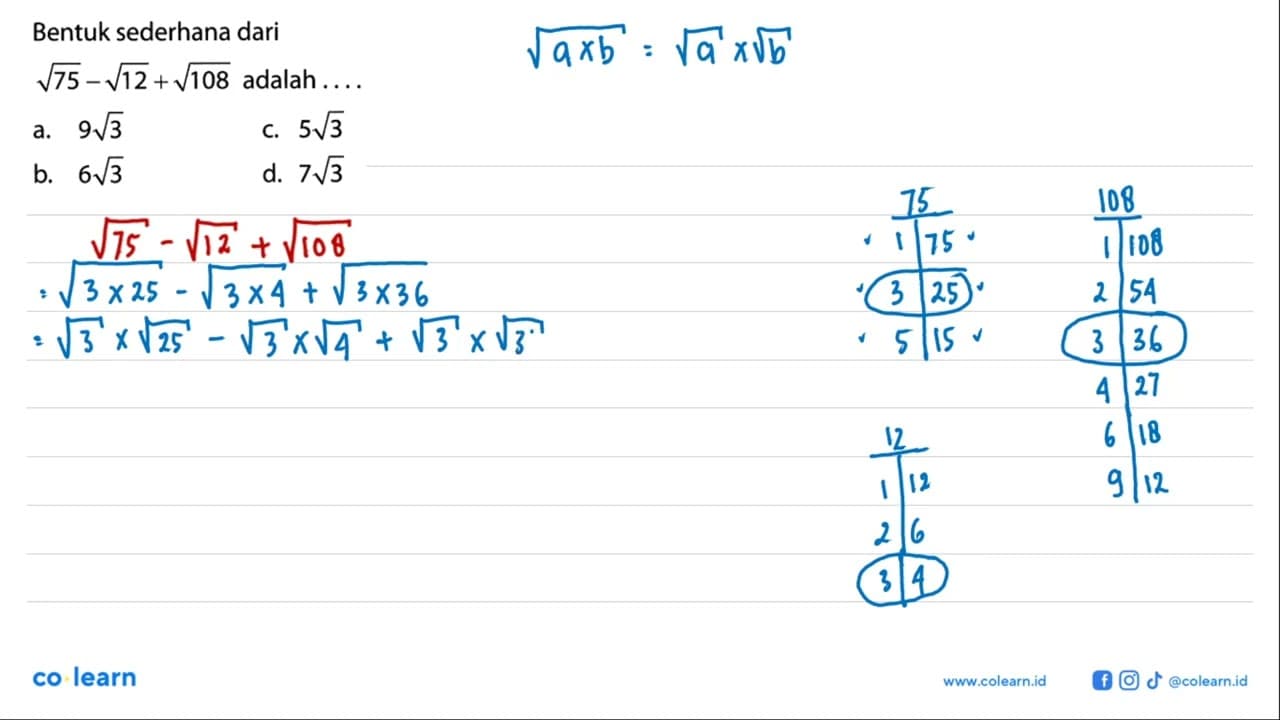 Bentuk sederhana dari
√75 − √12 + √108 adalah . . . .
a. 9√3 c. 5√3
b. 6√3 d. 7√3
√(a×b) = √a × √b
√75 - √12 + √108
= √(3×25) - √(3×4) + √(3×36)
= √3 × √25 - √3 × √4 + √3 × √3
75
1 | 75
3 | 25
5 | 15
12
1 | 12
2 | 6
3 | 4
108
1 | 108
2 | 54
3 | 36
4 | 27
6 | 18
9 | 12
co·learn
www.colearn.id
@colearn.id